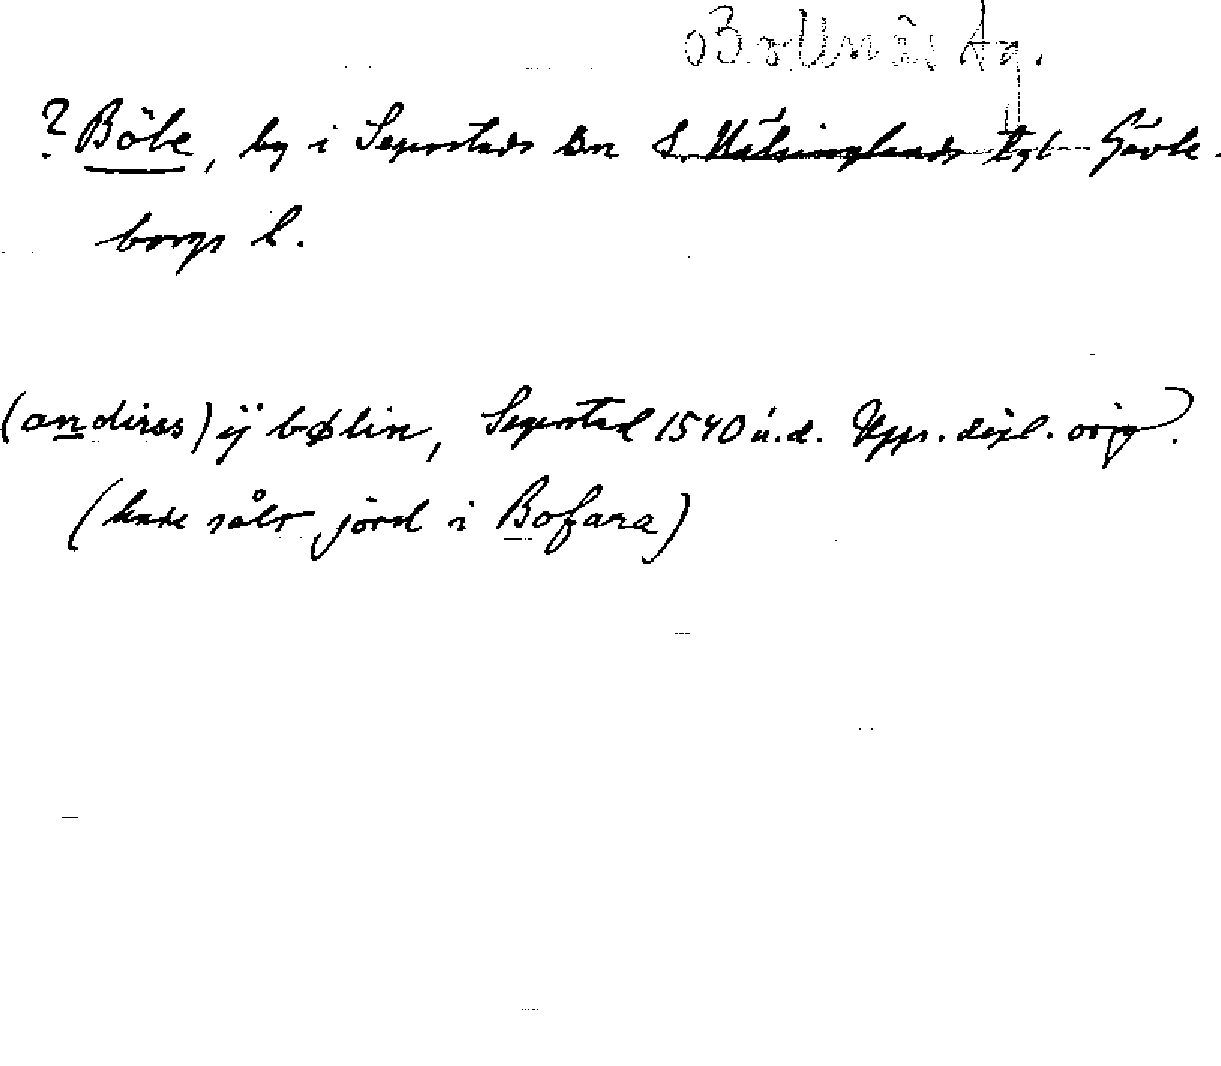 Bollnäs tg.
? Böle, by i Segerstads sn S. Hälsinglands tgl Gävle-
borgs l.
(andires) ÿ bølin, Segerstad 1540 u.d. Upps. dipl. orig.
(hade sålt jord i Bofara)